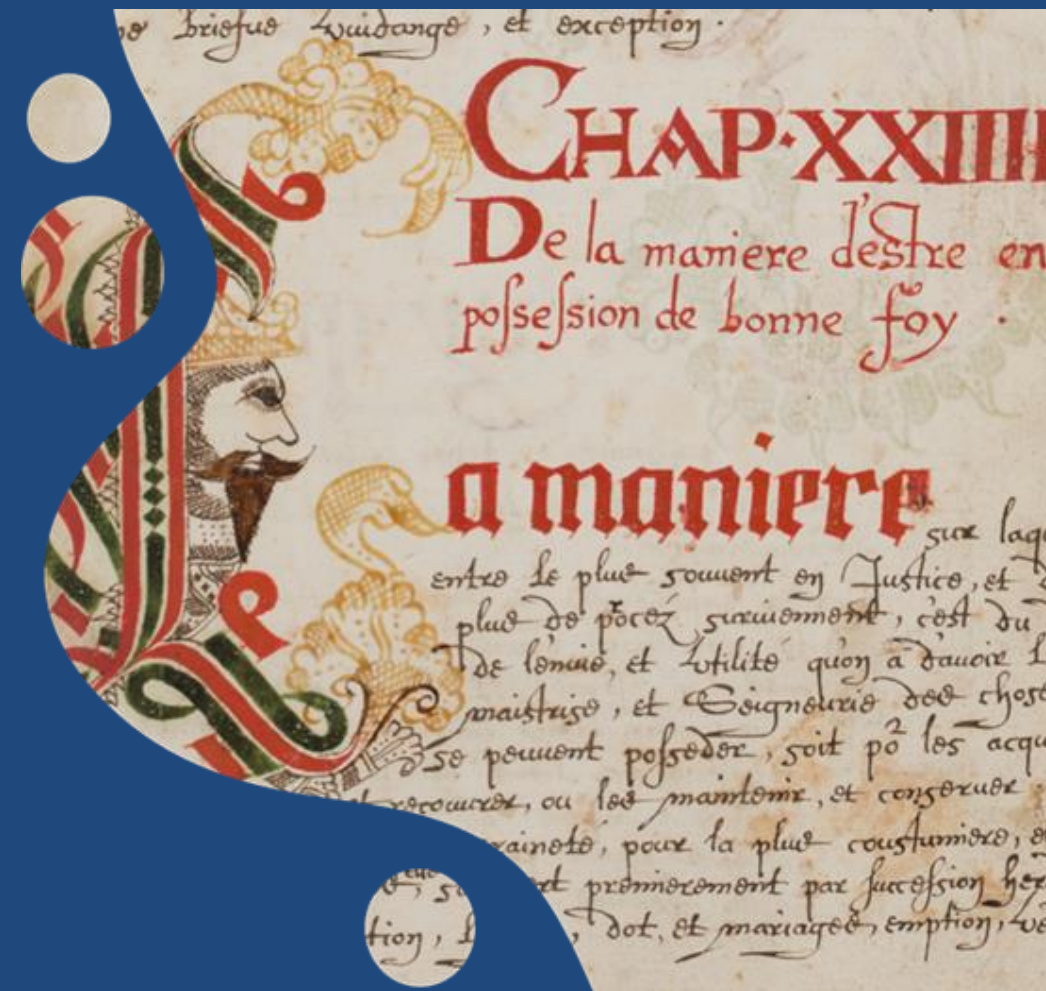 briefue wuidange, et exception.
CHAP·XXIIII
De la maniere d'estre en
possession de bonne foy .
a maniere sur laq
entre le plus souuent en Justice, et
plus de pocez suruiennent, c'est du
de l'enuie, et Vtilité qu'on a d'auoir
maistrise, et Seigneurie des chose
se peuuent posseder, soit po^r les acqu
recouurer, ou les maintenir, et conseruer
raineté, pour la plus coustumiere, e
premierement par succession her
tion, dot, et mariages, emption, ve